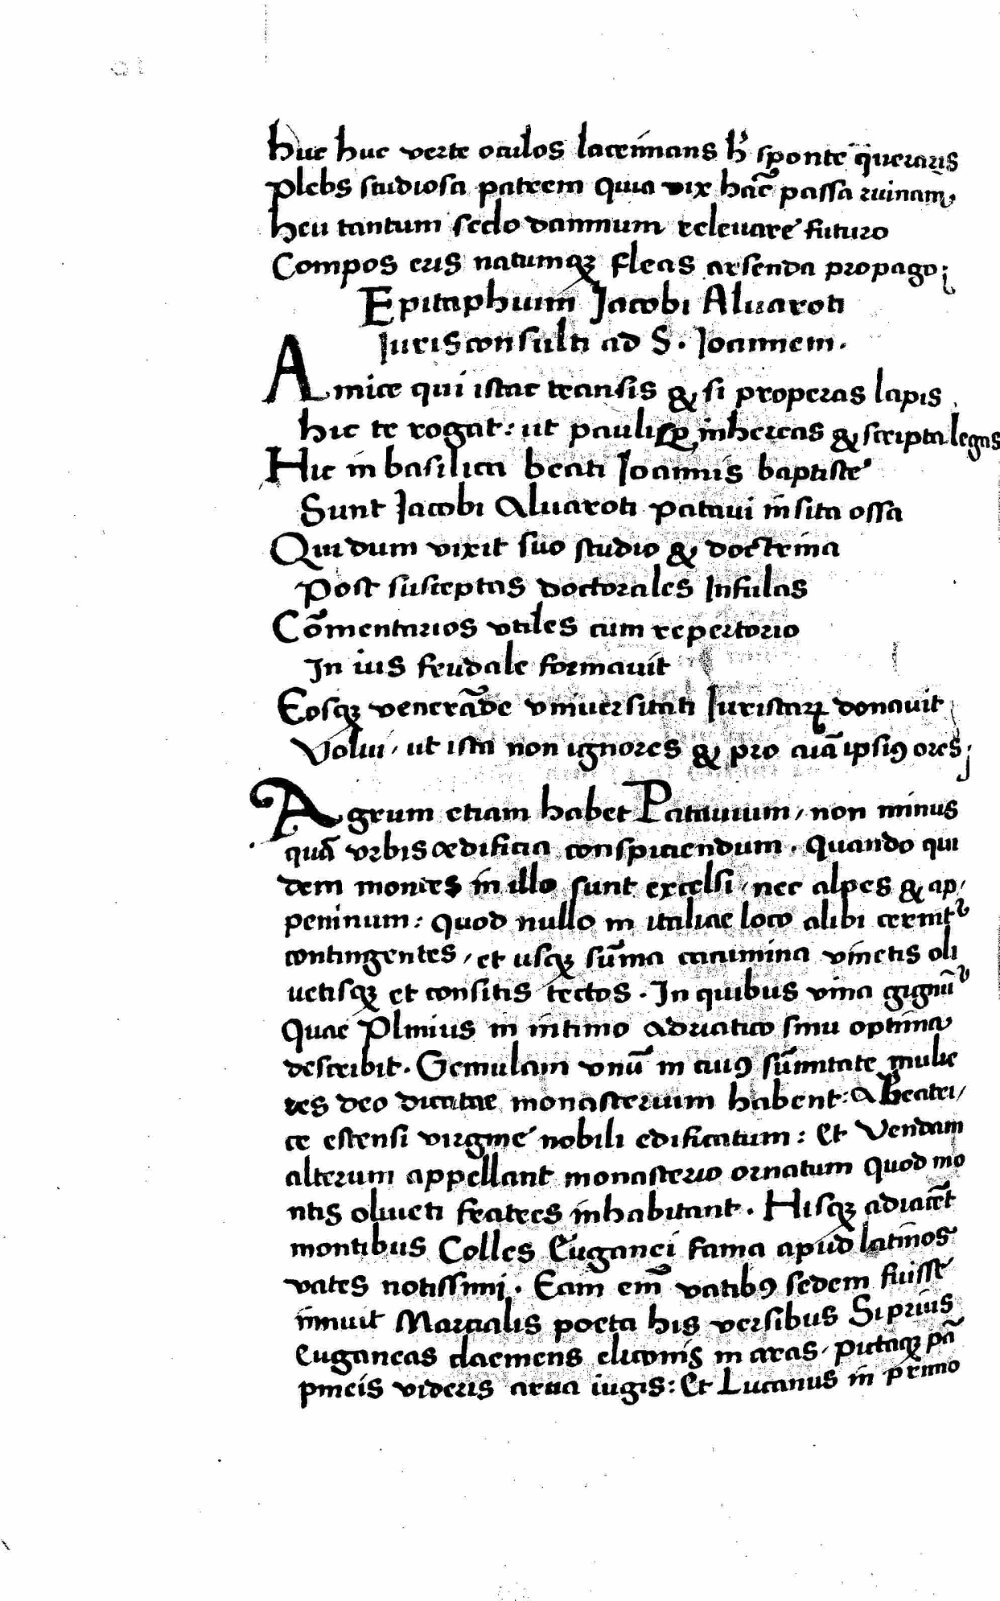 huc huc verte oculos lacrimans hͥ sponte queraris
plebs studiosa patrem quia vix hāc passa ruinam,
heu tantum seclo damnum relevare futuro
Compos eris natumqꝫ fleas arsenda propago;
Epitaphium Jacobi Alvaroti
Jurisconsulti ad S. Joannem.
Amice qui istac transis & si properas lapis
hic te rogat: ut paulisꝑ inhereas & scripta legas
Hic in basilica beati Joannis baptiste
Sunt Jacobi Alvaroti patavi insita ossa
Qui dum vixit suo studio & doctrina
Post susceptas doctorales Infulas
Cōmentarios utiles cum repertorio
In ius feudale formavit
Eosqꝫ venerāde universitati Juristaꝝ donavit
Volui, ut ista non ignores & pro aīa ipsiꝰ ores;
Agrum etiam habet Patavium, non minus
quā urbis ædificia conspiciendum. Quando qui
dem montes in illo sunt excelsi, nec alpes & ap,
peninum: quod nullo in italiae loco alibi cernit᷑
contingentes, et usqꝫ sūma cacumina vinetis oli
vetisqꝫ et consitis tectos. In quibus vina gignūt᷑
Quae Plinius in intimo adriatico sinu optima
describit. Gemulam unū in cuiꝰ sūmitate mulie
res deo dicatae monasterium habent: a Beatri,
ce estensi virgine nobili edificatum: et Vendam
alterum appellant monasterio ornatum quod mo
ntis oliveti fratres inhabitant. Hisqꝫ adiacēt
montibus Colles Euganei fama apud latinos
vates notissimi. Eam em̄ vatibꝰ sedem fuisse
innuit Martialis poeta his versibus Si prius
euganeas clemens eliconis in aras, pictaqꝫ pā
pineis videris arva iugis: et Lucanus in primo